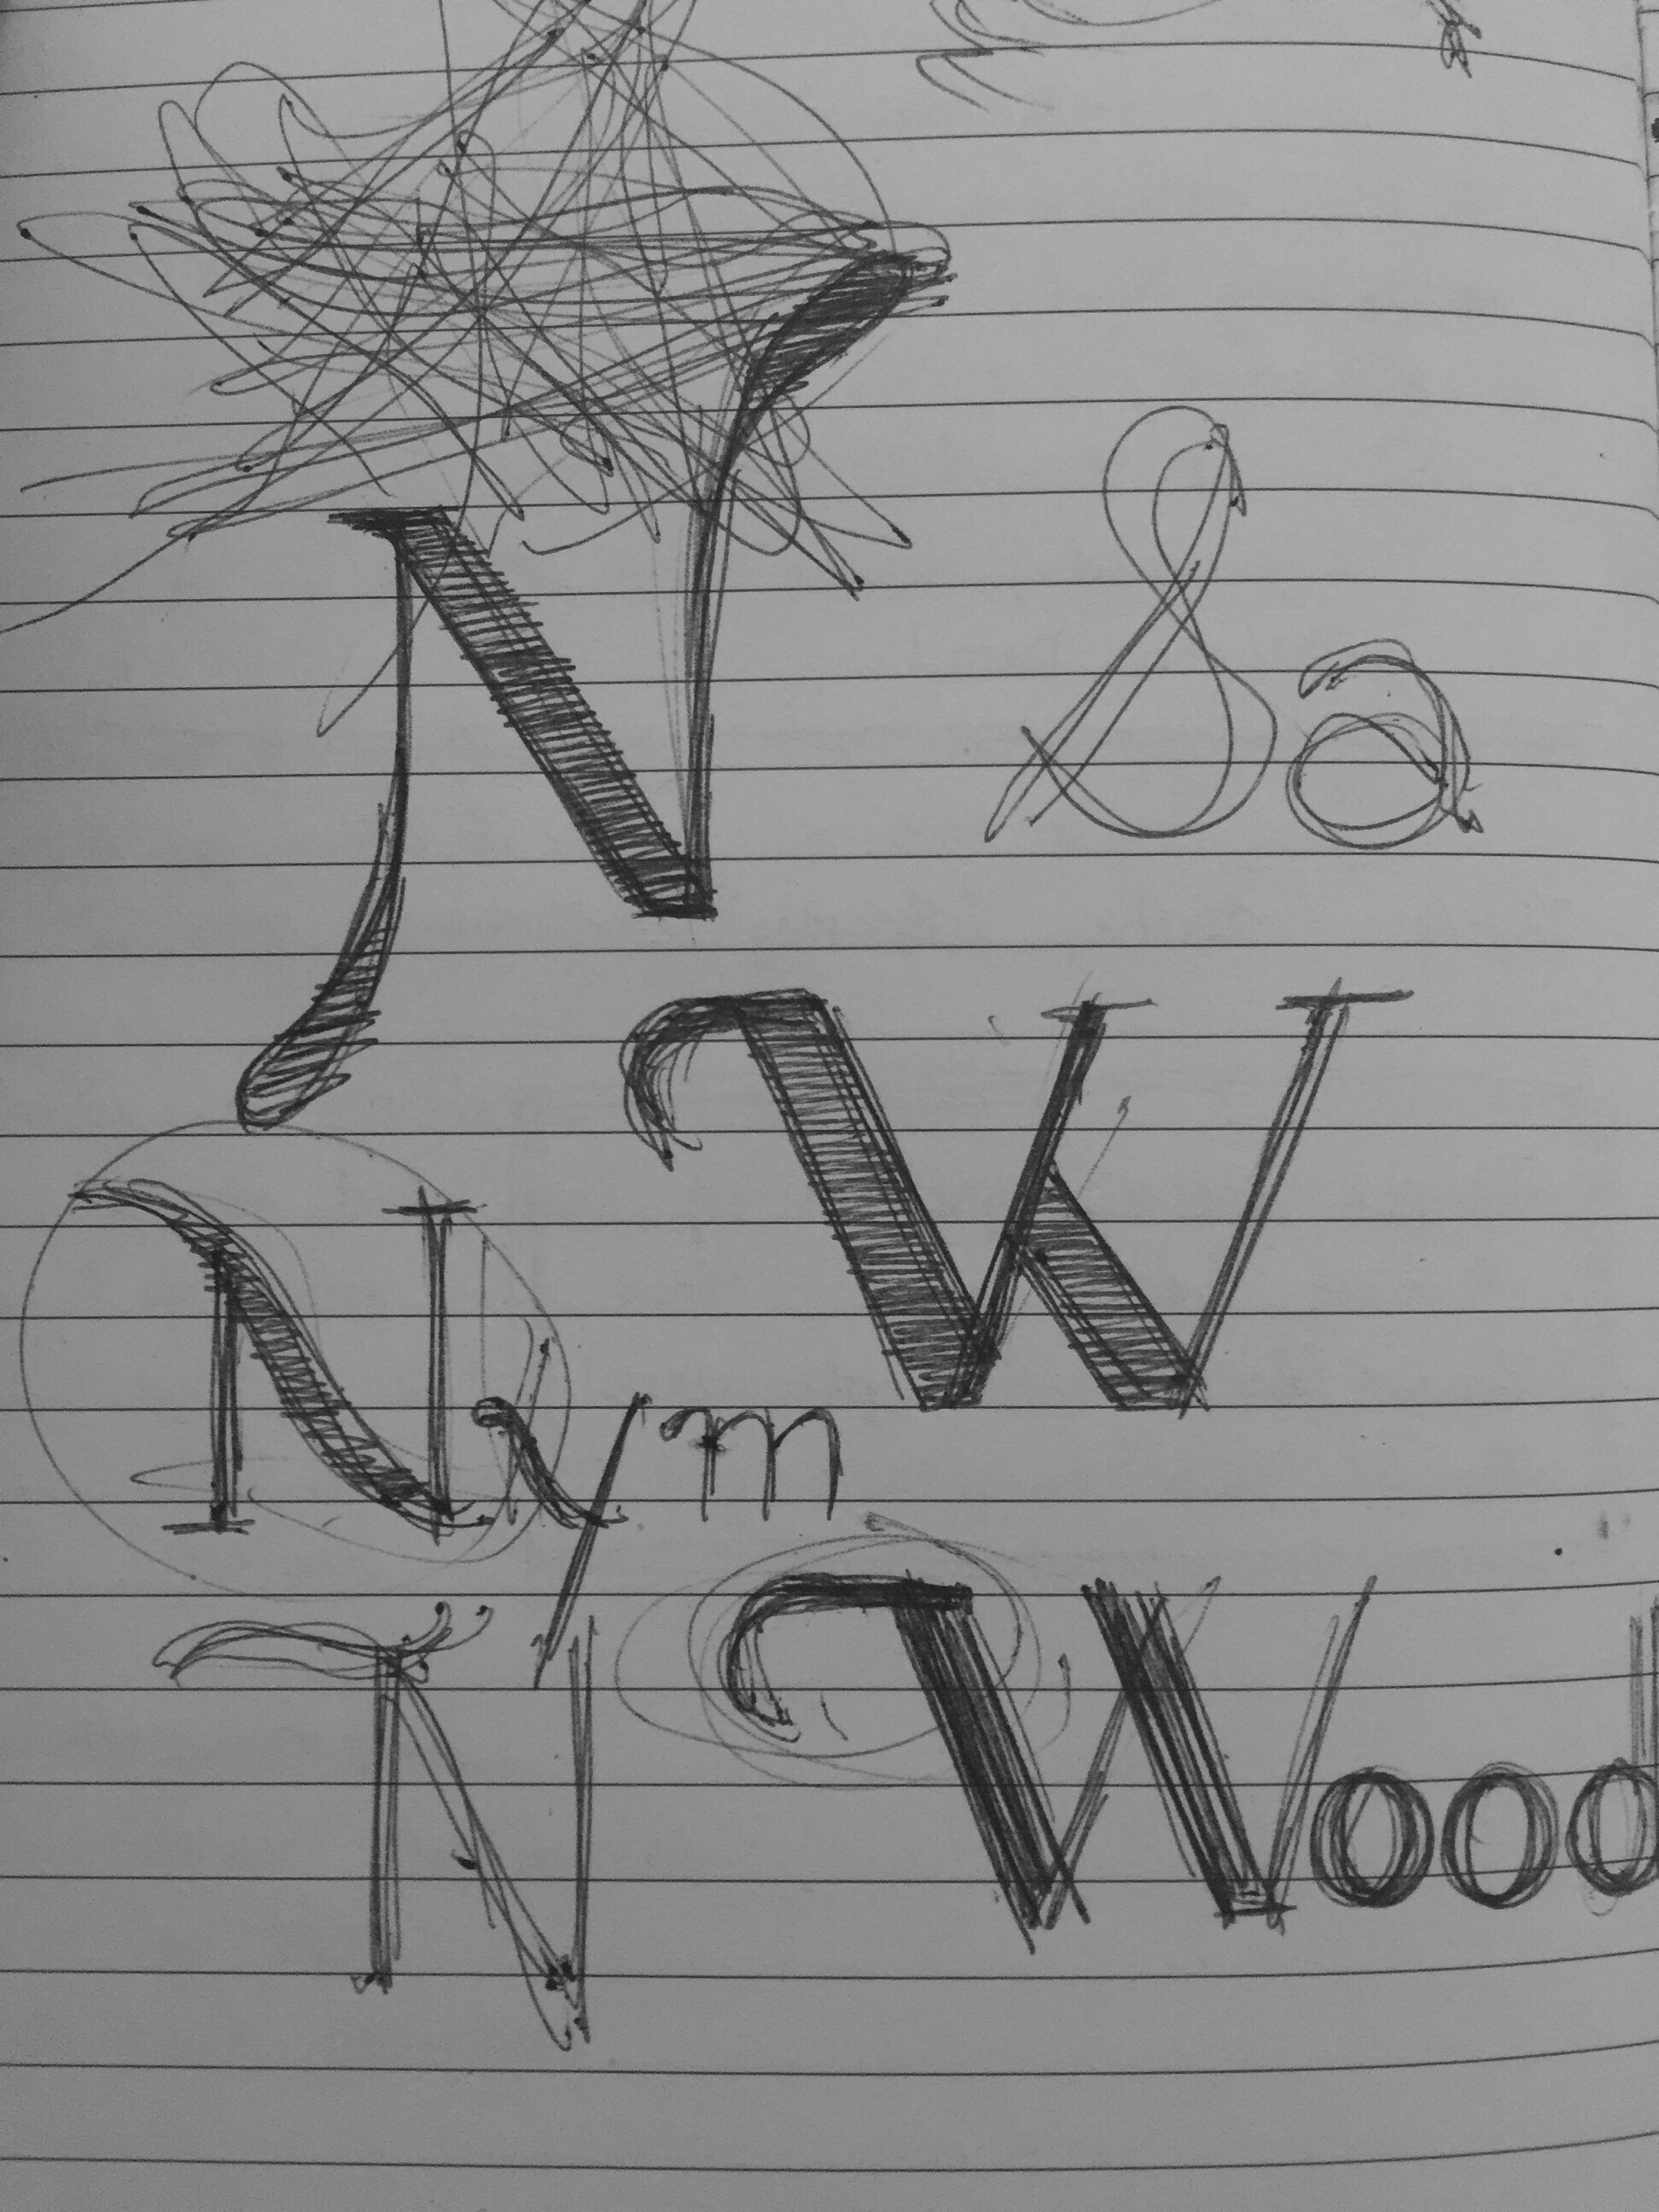 N & a
W
Nym
N Wood